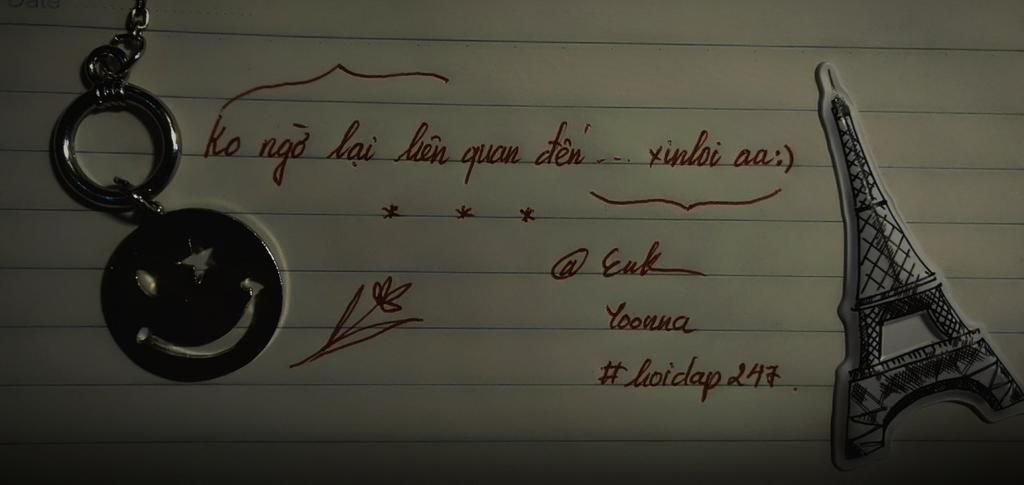 Date
Ko ngờ lại liên quan đến ... xinloi aa:)
* * *
@ Euk
Yoonna
#hoidap247